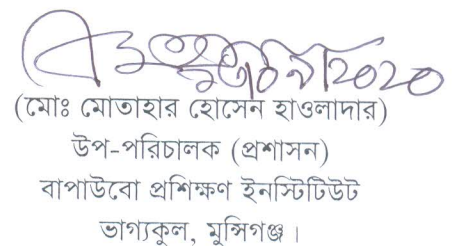 (মোঃ মোতাহার হোসেন হাওলাদার)
উপ-পরিচালক (প্রশাসন)
বাপাউবো প্রশিক্ষণ ইনস্টিটিউট
ভাগ্যকুল, মুন্সিগঞ্জ।